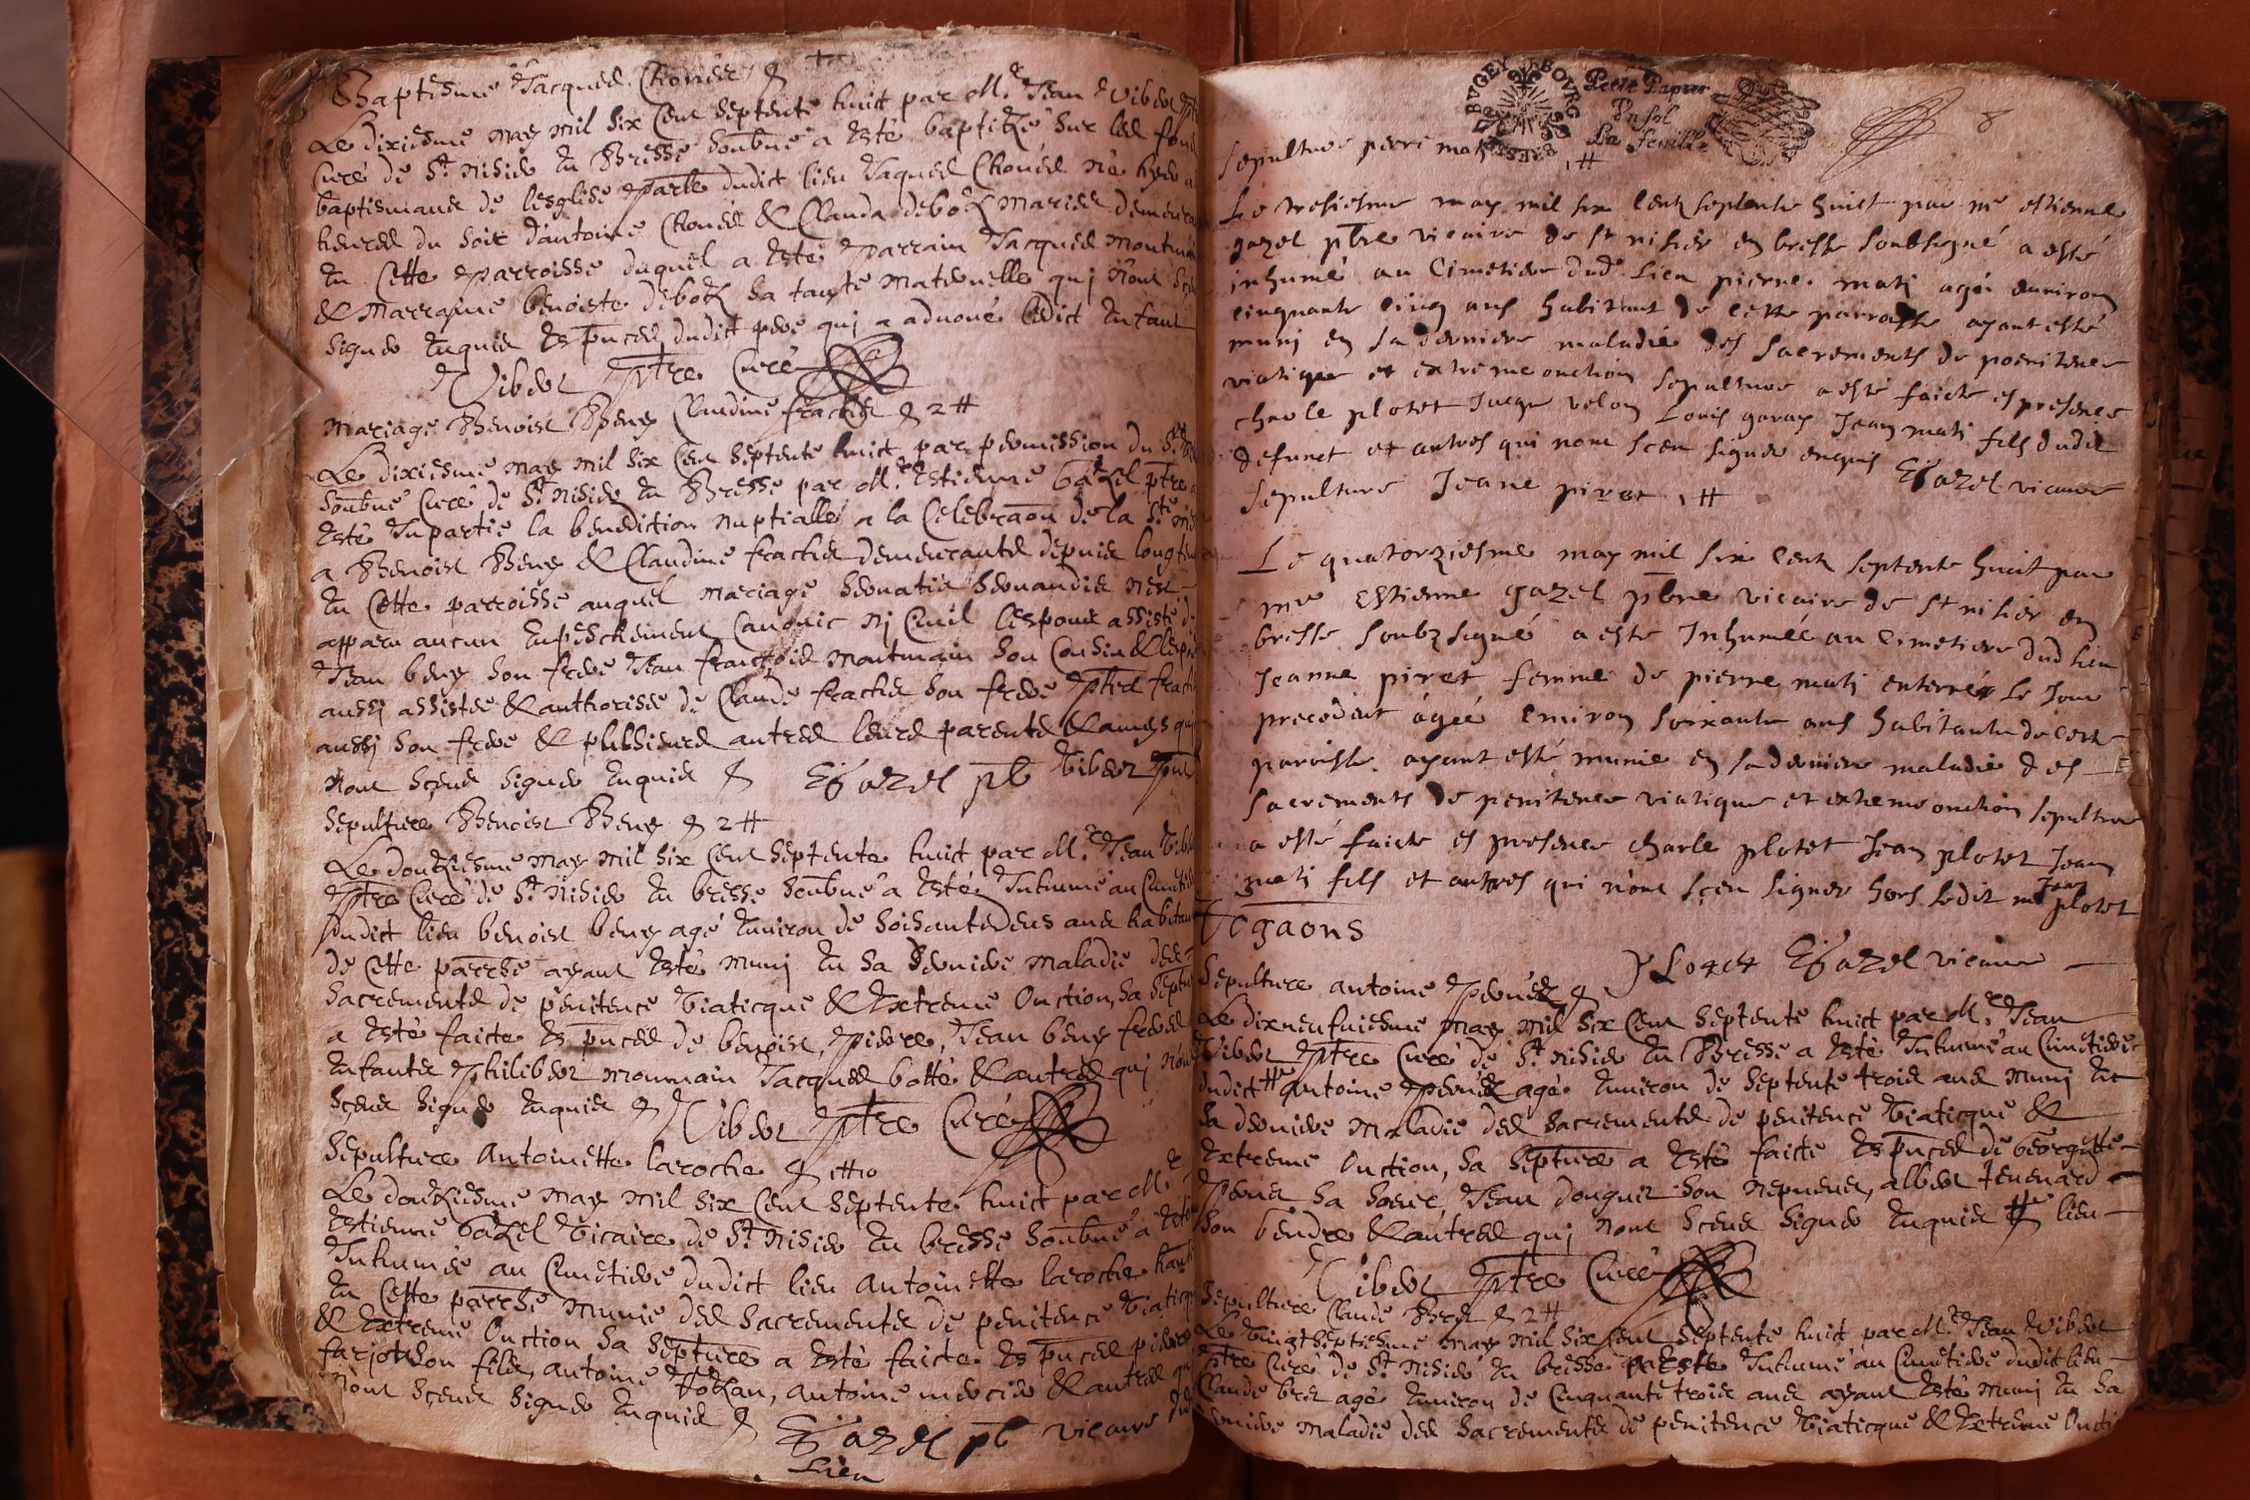 Baptisme Jacques Chonés &
Le dixiesme may mil six cent septente huict par Mre Jean Vibert
Curé de St Nisier en Bresse soubné a esté baptizé sur les fons
baptismaux de lesglise parlle dudict lieu Jacques Chonés né hyer a
heures du soir d'antoine Chonés & Clauda debost mariés
en Cette parroisse duquel a esté parrain Jacques
& marrayne benoiste debost sa tante maternelle qui n'ont sçeu
signer enquis es pnces dudict pere qui a aduoué ledict enfant
Vibert ptre Curé
Mariage Benoist Beny Claudine frachet & 2 #
Le dixiesme may mil six cent septente huict par permission du Sr
soubné Curé de St Nisier en Bresse par Mre Estienne Gazel ptre a
esté Inpartie la benediction nuptialle a la Celebraon de la Ste
a Benoist Beny & Claudine frachet demeurants depuis longtems
en Cette parroisse auquel mariage seruatis seruandis n'est
apparu aucun enpeschement Canonic ni Ciuil lespoux assisté de
Jean beny son frere Jean françois montmain son Cousin &
aussi assistée & authorisée de Claude frachet son frere
aussi son frere & plussieurs autres leurs parents & amys qui
n'ont sçeus signer enquis & EGazel pb Vibert
Sepulture Benoist Beny & 2 #
Le douziesme may mil six cent septente huict par Mre Jean
ptre Curé de St Nisier en bresse soubné a esté Inhumé au
dudict lieu benoist beny agé enuiron de soisante deus ans
de Cette parrse ayant esté muni en sa derniere maladie des
sacrements de penitence viaticque & Extreme Onction, sa
a esté faicte es pnces de benoist, pierre, Jean beny freres
enfants philibert monmain Jacques botté & autres qui n'ont
sçeus signer enquis & Vibert ptre Curé
Sepulture Antoinette laroche &
Le douziesme may mil six cent septente huict par Mre
Estienne Gazel vicaire de St Nisier en bresse soubné a esté
Inhumée au Cimetiere dudict lieu antoinette laroche
en Cette parrse munie des sacrements de penitence
& Extreme Onction sa septure a esté faicte es pnces pierre
farjot son fils, antoine, antoine mercier & autres
n'ont sçeus signer enquis & EGazel pb vicaire
Lieu
BVGEY BOVRG BRESSE
Petit Papier
Un sol
La feuille
8
Sepulture pierre mati #
Le tresiesme may mil six cent septente huict par me estienne
gazel pbre vicaire de st nisier en bresse soubsigné a esté
inhumé au Cimetiere dud. lieu pierre mati agé enuiron
cinquante cinq ans habitant de cette parroisse ayant esté
muni en sa derniere maladie des sacrements de poenitence
viatique et extreme onction sepulture a esté faicte es presence
charle plotet Jaque velon Louis garay Jean mati fils dudit
defunct et autres qui n'ont sceu signer enquis EGazel vicaire
sepulture Jeane piret #
Le quatorziesme may mil six cent septente huict par
me estienne gazel pbre vicaire de st nisier en
bresse soubzsigné a este Inhumée au cimetiere dud lieu
Jeanne piret femme de pierre mati enterré le Jour
precedent ágéé enuiron soixante ans habitante de cette
paroisse. ayant esté munie en sa derniere maladie des
sacrements de penitence viatique et extreme onction sepulture
a esté faicte es presence charle plotet Jean plotet Jean
mati fils et autres qui n'ont sçeu signer hors ledit Jean plotet
EGazel vicaire
Sepulture antoine &
Le dixneufuiesme may mil six cent septente huict par Mre Jean
Vibert ptre Curé de St Nisier en Bresse a esté Inhumé au Cimetiere
dudict # antoine agé enuiron de septente trois ans muni en
sa derniere maladie des sacrements de penitence viaticque &
Extreme Onction, sa septure a esté faicte es pnces de Georgette
sa soeur, Jean donguis son nepueux, albert teuenard
son Gendre & autres qui n'ont sçeus signer enquis # lieu
Vibert ptre Curé
Sepulture Claude Bret & 2 #
Le vingtseptiesme may mil six cent septente huict par Mre Jean Vibert
ptre Curé de St Nisier en bresse a esté Inhumé au Cimetiere dudit lieu
Claude bret agé enuiron de Cinquante trois ans ayant esté muni en sa
derniere maladie des sacrements de penitence viaticque & Extreme